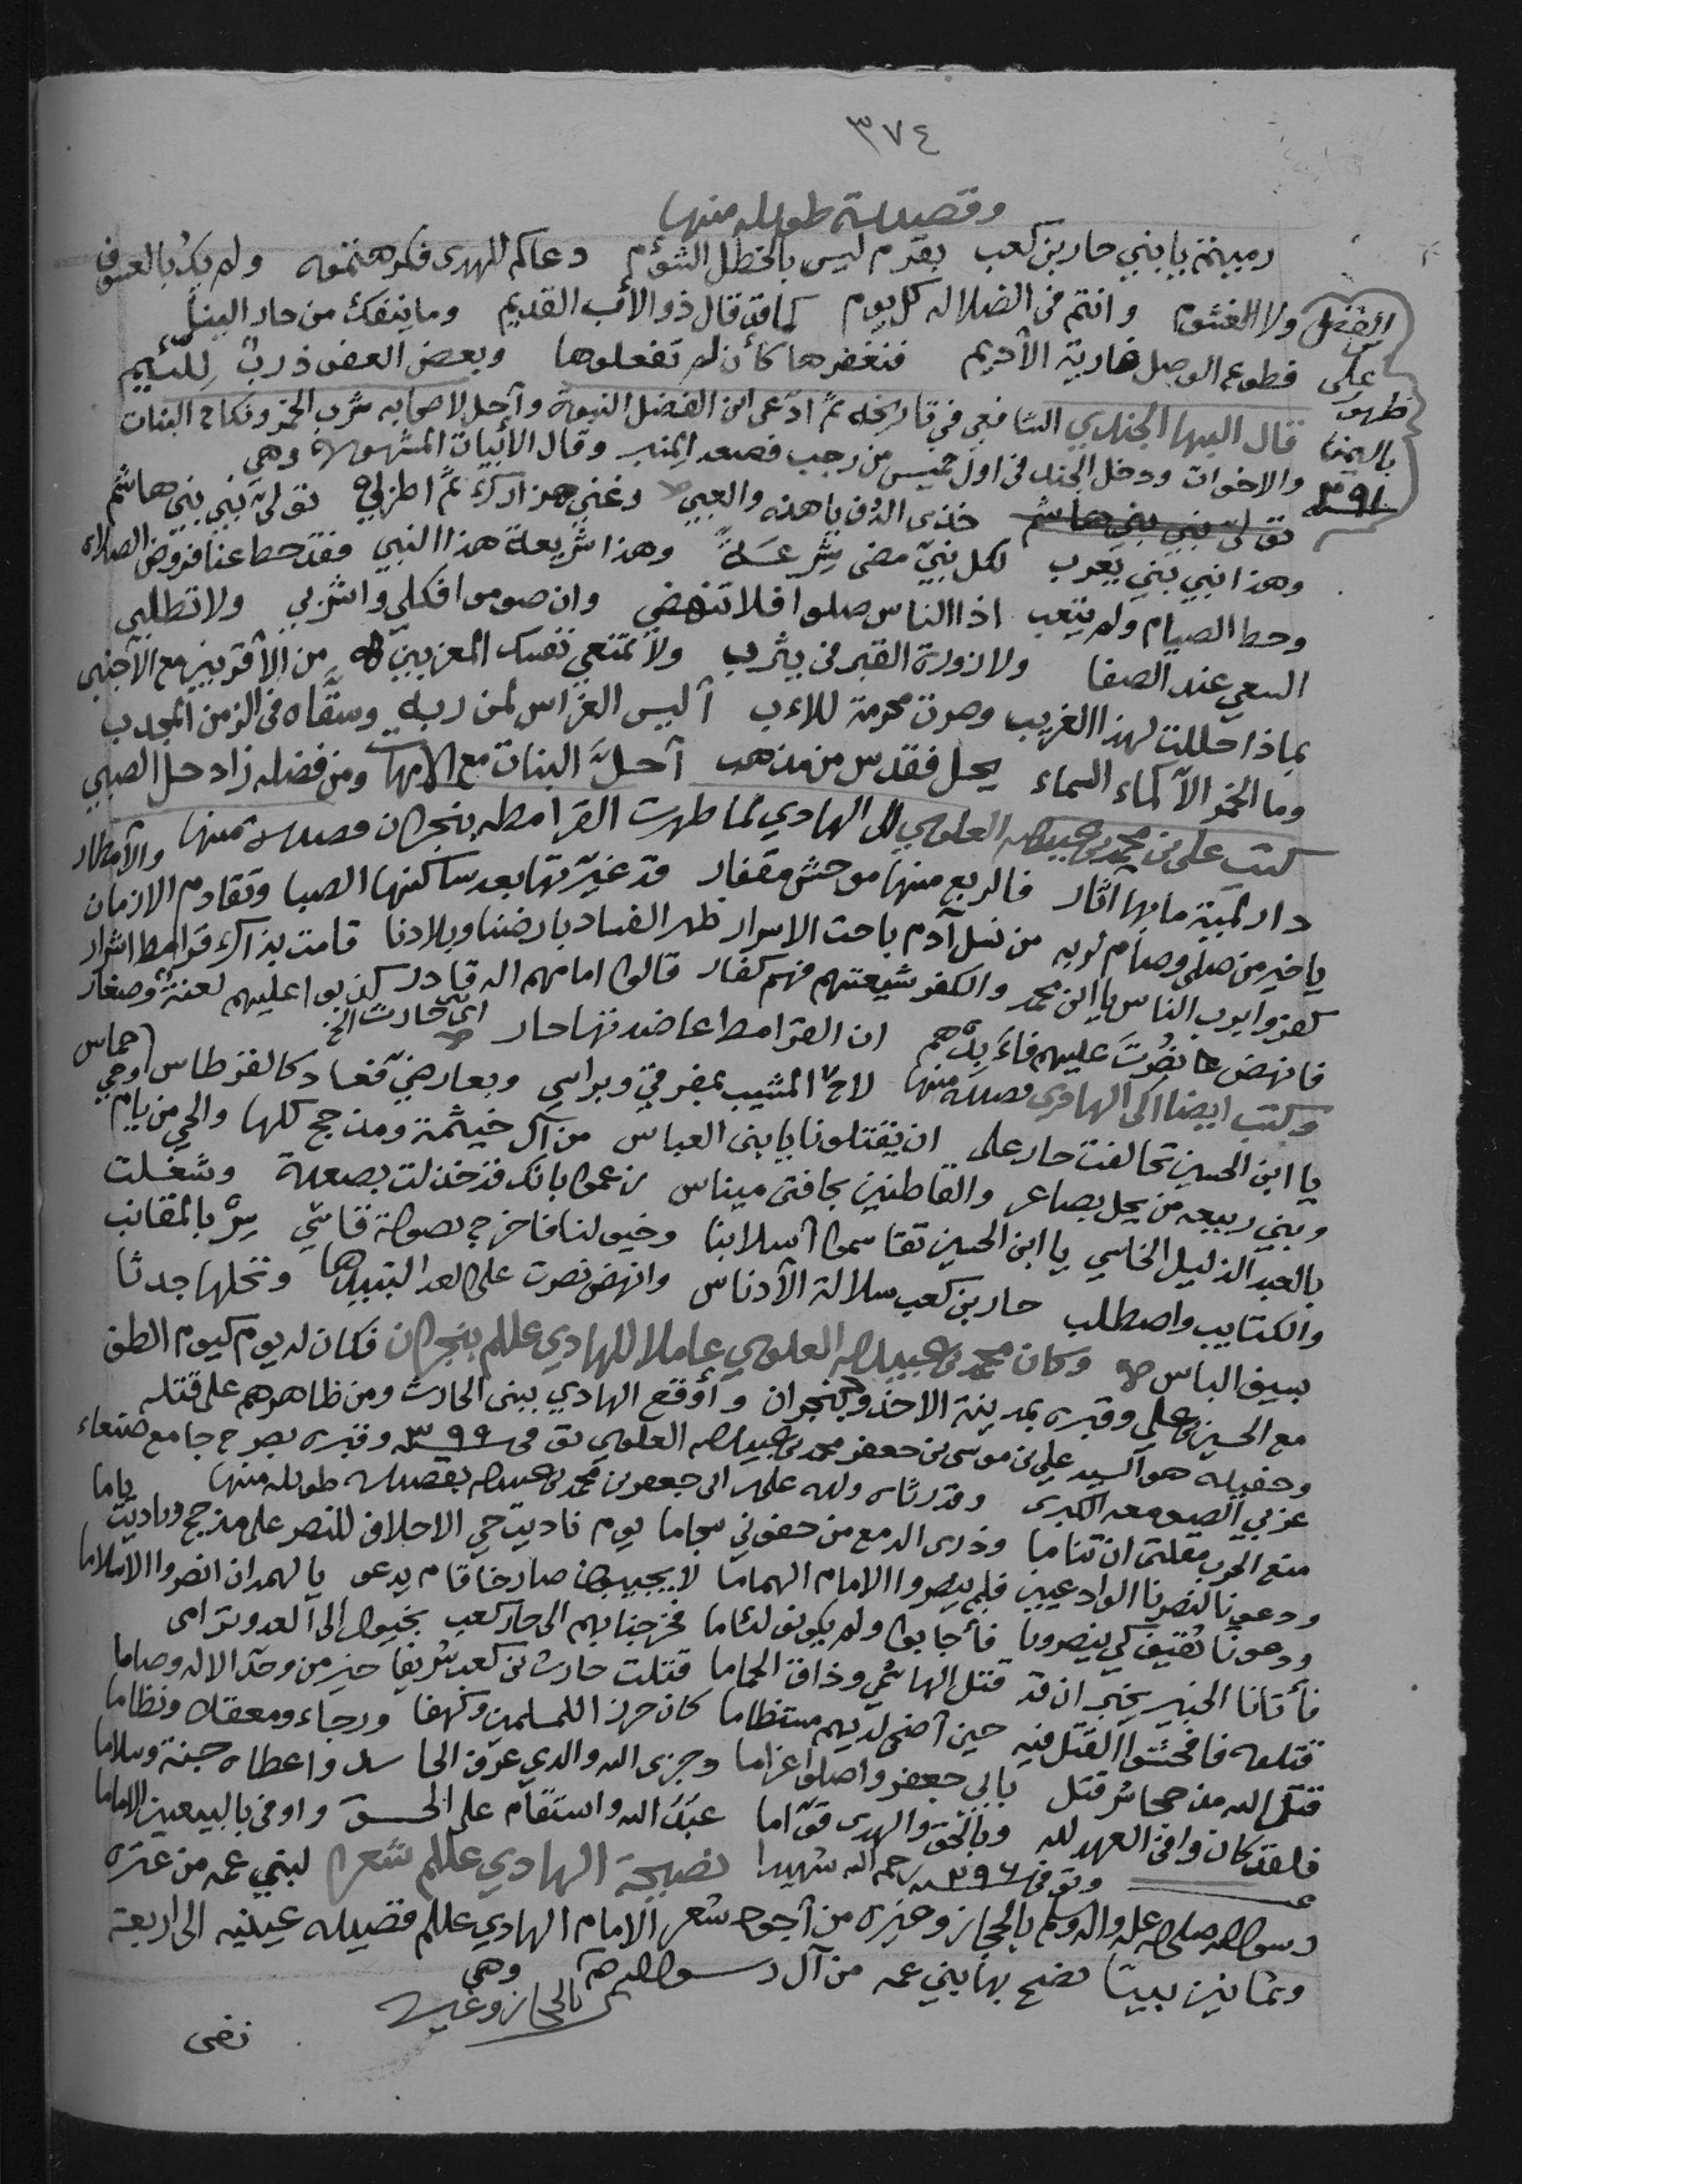 ٣٧٤
وقصيدة طويله منها
رميتم يا بني حار بن كعب بقرم ليس بالخطل الشؤم دعاكم للهدى فكرهتموه ولم يك بالعسوف
ولا الغشوم وانتم في الضلاله كل يوم كما قد قال ذو الأب القديم وما ينفك من حار الينا
قطوع الوصل ضاربة الأديم فنغفرها كأن لم تفعلوها وبعض العفو ذرب للئيم
الفضل
علي
ظهور
باليمن
٣٩١
قال البها الجندي الشافعي في تاريخه ثم ادعى ابن الفضل النبوة وأحل لاصحابه شرب الخمر ونكاح البنات
والاخوات ودخل الجند في اول خميس من رجب فصعد المنبر وقال الأبيات المشهورة وهي
خذي الدف يا هذه والعبي وغني هزارك ثم اطربي تولى نبي بني هاشم
وهذا نبي بني يعرب لكل نبي مضى شرعة وهذا شريعة هذا النبي فقد حط عنا فروض الصلاة
وحط الصيام ولم يتعب اذا الناس صلوا فلا تنهضي وان صوموا فكلي واشربي ولا تطلبي
السعي عند الصفا ولا زورة القبر في يثرب ولا تمنعي نفسك المعزبين من الأقربين مع الأجنبي
بماذا حللت لهذا الغريب وصرت محرمة للاءب أليس الغراس لمن ربه وسقاه في الزمن المجدب
وما الخمر الا كماء السماء يحل فقدس من مذهب أحل البنات مع الامهات ومن فضله زاد حل الصبي
كتب علي بن محمد بن عبيدالله العلوي الى الهادي لما ظهرت القرامطه بنجران قصيدة منها
دار لمية ما بها آثار فالربع منها موحش مقفار قد غيرتها بعد ساكنها الصبا وتقادم الازمان والأمطار
يا خير من صلى وصام لربه من نسل آدم باحث الاسرار ظهر الفساد بارضنا وبلادنا قامت بذاك قرامط اشرار
كفروا برب الناس يا ابن محمد والكفر شيعتهم فهم كفار قالوا امامهم اله قادر كذبوا عليهم لعنة وصغار
فانهض نصرت عليهم فاء بدهم ان القرامط عاضدتها حار اي حارث الخ
وكتب ايضا الى الهادي قصيدة منها لاح المشيب بمفرقي وبراسي وبعارضي فعاد كالقرطاس
يا ابن الحسين تحالفت حار على ان يقتلونا يا بني العباس من آل خيثمة ومذحج كلها والحي من يام
وبني ربيعه من يحل بصاعر والقاطنين بجافتي ميناس زعموا بانك قد خذلت بصعدة وشغلت
بالعبد الذليل الخاسي يا ابن الحسين تقاسموا اسلابنا وخيولنا فاخرج بصولة قاسي سر بالمقانب
والكتايب واصطلب حار بن كعب سلالة الأدناس وانهض نصرت على العدا لتبيدها وتخلها جدثا
بسيف الباس وكان محمد بن عبيدالله العلوي عاملا للهادي علم بنجران فكان له يوم كيوم الطف
مع الحسين بن علي وقبره بمدينة الاخدود بنجران وأوقع الهادي ببني الحارث ومن ظاهرهم على قتله
وحفيده هو السيد علي بن موسى بن جعفر محمد بن عبيدالله العلوي توفي ٣٩٩ وقبره بصرح جامع صنعاء
غربي الصومعه الكبرى وقد رثاه ولده علي ابي جعفر بن محمد بن عبيدالله بقصيدة طويله منها
منع الحرب مقلتي ان تناما وذرى الدمع من جفوني سجاما يوم ناديت حي الاحلاف للنصر على مذحج وناديت ياما
ودعونا لنصرنا الوادعيين فلم ينصروا الامام الهماما لا يجيبون صارخا قام يدعو يا لهمدان انصروا الاسلاما
ودعونا ثقيف كي ينصرونا فأجابوا ولم يكونوا لئاما فخرجنا بهم الى حار كعب بخيول الى العدو ترامى
فأتانا الخبير يخبر ان قد قتل الهاشمي وذاق الحماما قتلت حارث بن كعب شريفا خير من وحد الاله وصاما
قتلوه فافحشوا القتل فيه حين أضحى لديهم مستظاما كان حرزا للمسلمين وكهفا ورجاء ومعقلا ونظاما
قتل الله مذحجا شر قتل بابي جعفر واصلوا غراما وجزى الله والدي غرف الخلد واعطاه جنة وسلاما
فلقد كان وافي العهد لله وبالحق والهدى قواما عبد الله واستقام على الحق واوفى بالبيعين الاماما
وتوفي ٣٩٦ رحمه الله شهيدا نصيحة الهادي علم شعرا لبني عمه من عترة
رسول الله صلى الله عليه واله وسلم بالحجاز وغيره من أجود شعر الامام الهادي علم قصيدة عينيه الى اربعة
وثمانين بيتا نصح بها بني عمه من آل رسول الله بالحجاز وغيره وهي